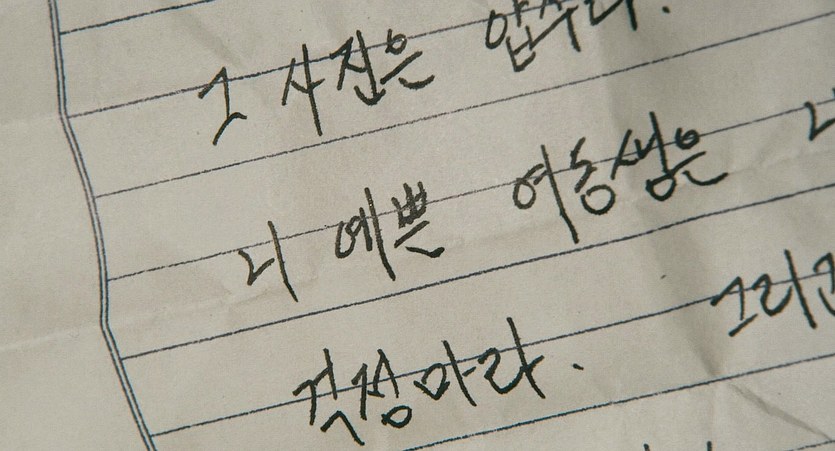 그 사진은 압수다.
니 예쁜 여동생은
걱정마라. 그리고